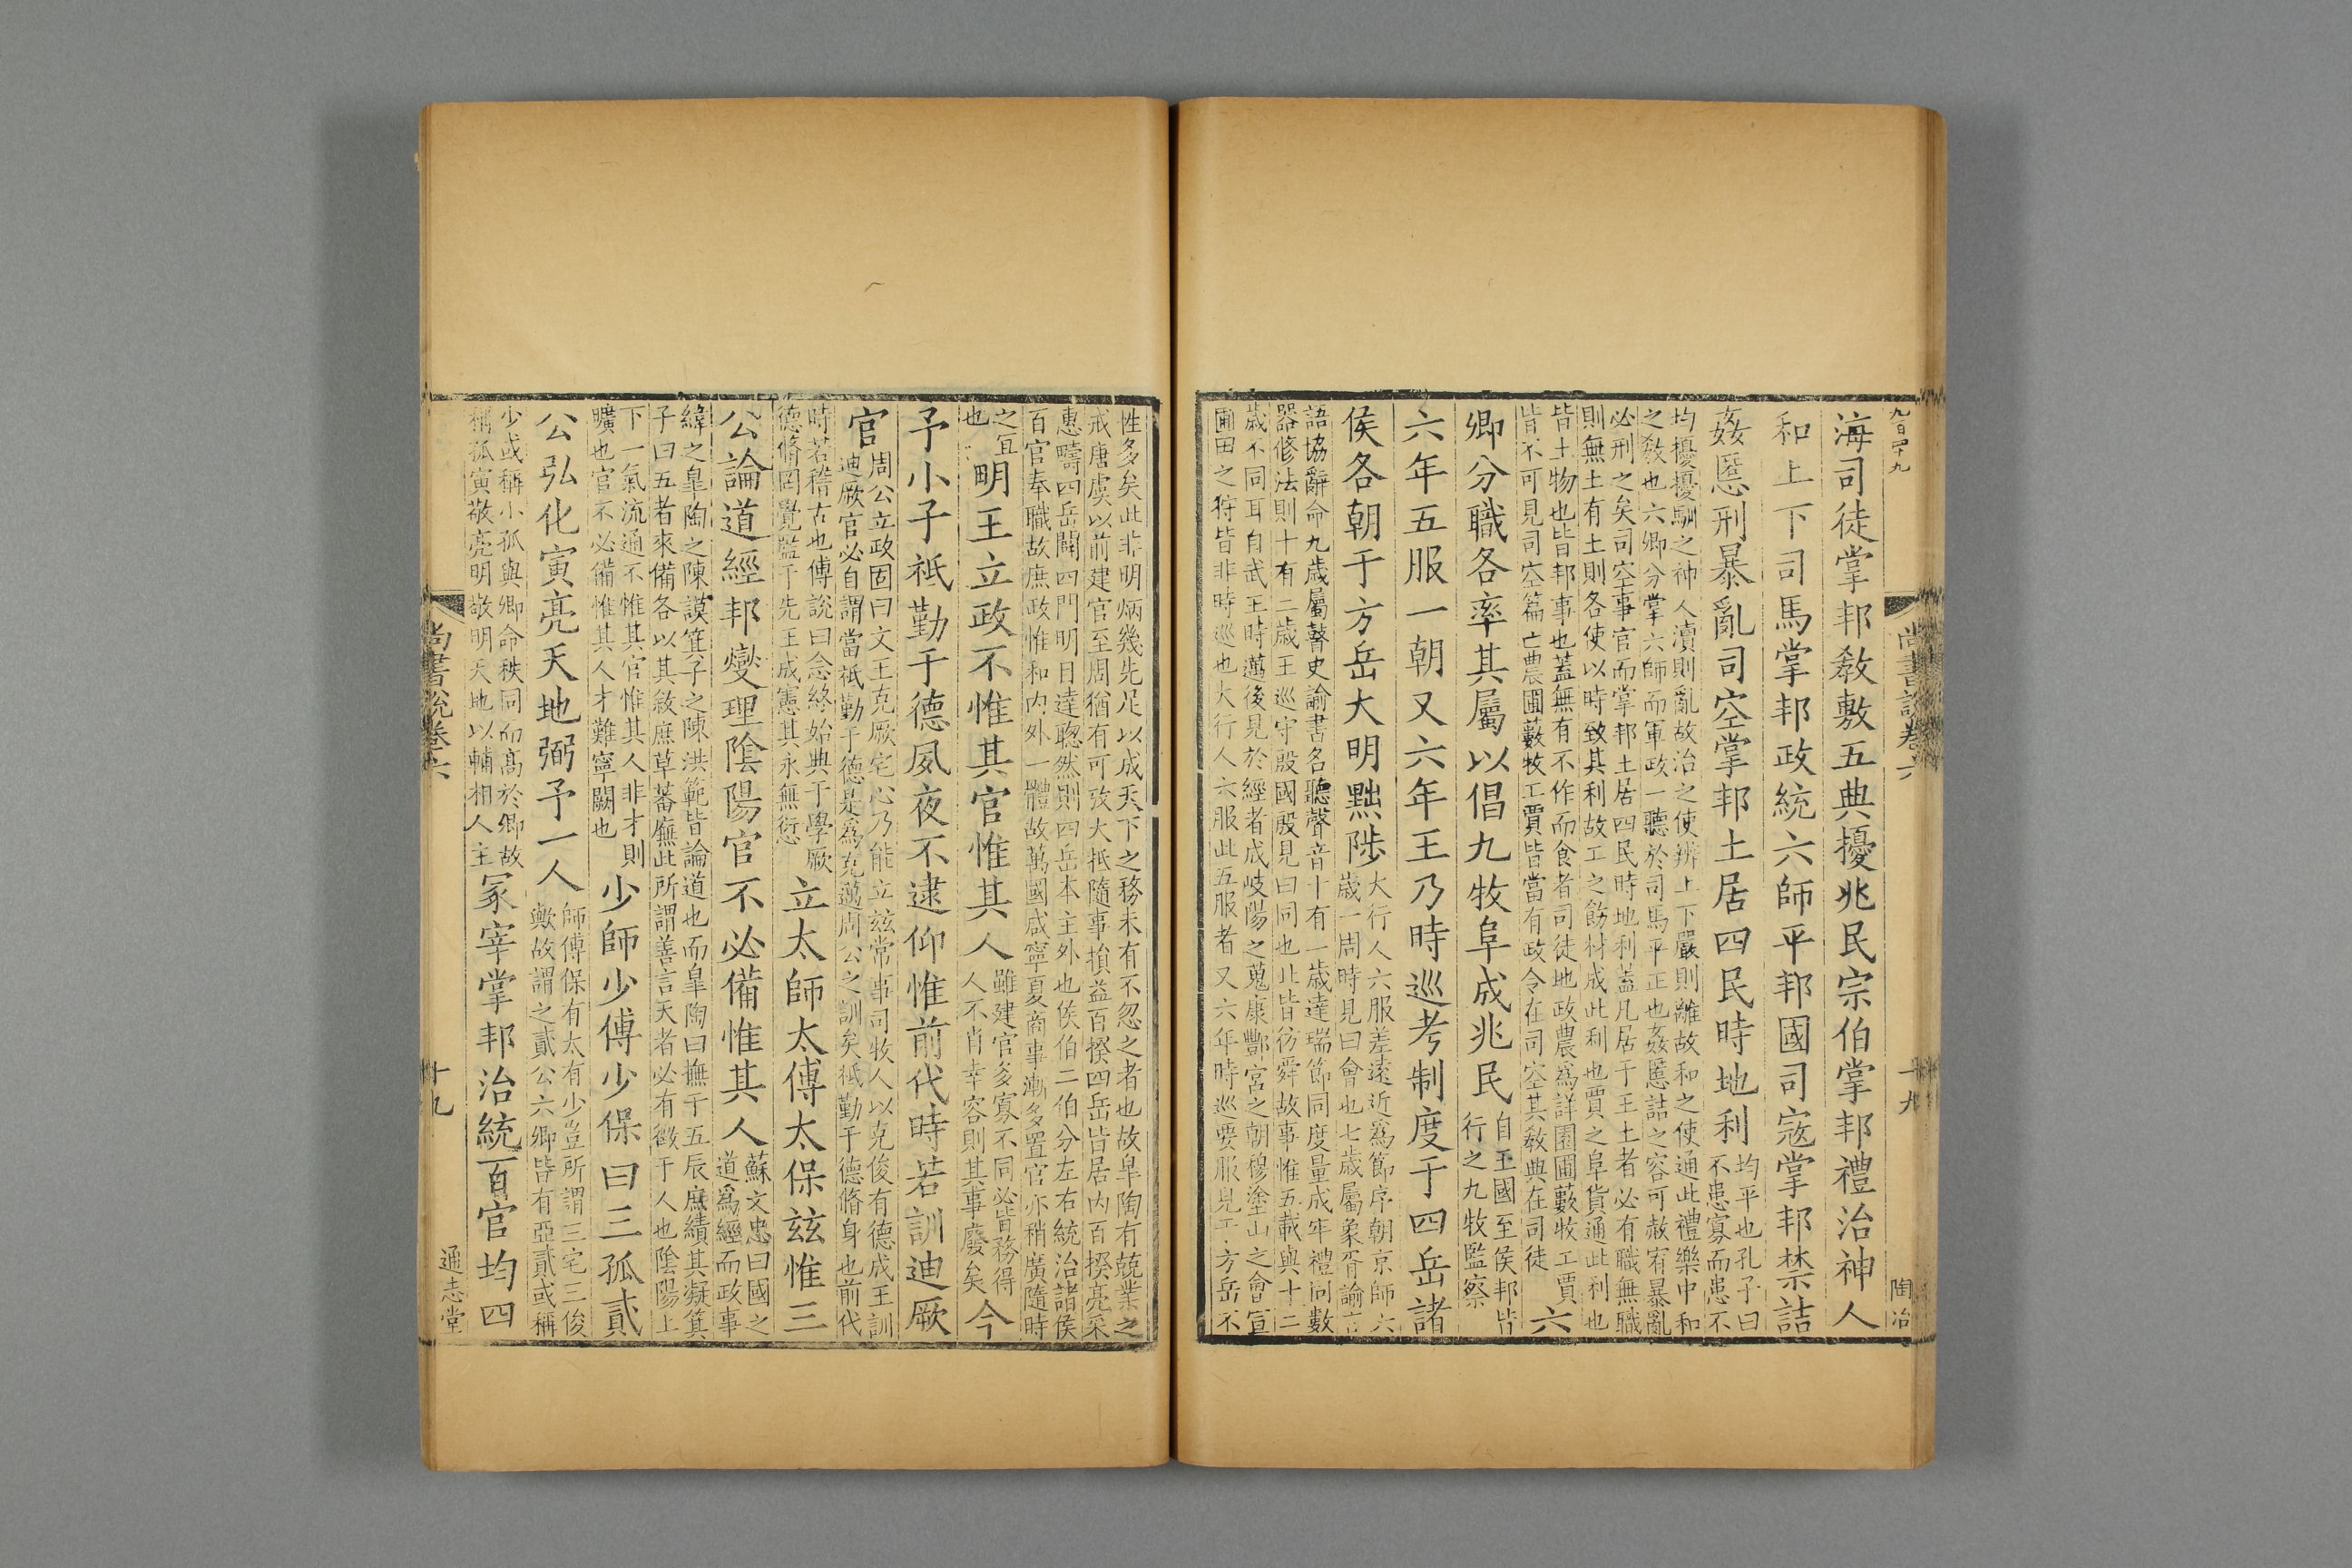 九百四十九
尚書說卷六
十九
陶冶
海司徒掌邦敎敷五典擾兆民宗伯掌邦禮治神人
和上下司馬掌邦政統六師平邦國司寇掌邦禁詰
姦慝刑暴亂司空掌邦土居四民時地利
均平也孔子曰
不患寡而患不
均擾擾馴之神人瀆則亂故治之使辨上下嚴則離故和之使通此禮樂中和
之敎也六卿分掌六師而軍政一聽於司馬平正也姦慝詰之容可赦宥暴亂
必刑之矣司空事官而掌邦土居四民時地利蓋凡居于王土者必有職無職
則無土有土則各使以時致其利故工之飭材成此利也賈之阜貨通此利也
皆土物也皆邦事也蓋無有不作而食者司徒地政農爲詳園圃藪牧工賈
皆不可見司空篇亡農圃藪牧工賈皆當有政令在司空其敎典在司徒
六
卿分職各率其屬以倡九牧阜成兆民
自王國至侯邦皆
行之九牧監察
六年五服一朝又六年王乃時巡考制度于四岳諸
侯各朝于方岳大明黜陟
大行人六服差遠近爲節序朝京師六
歲一周時見曰會也七歲屬象胥諭言
語協辭命九歲屬瞽史諭書名聽聲音十有一歲達瑞節同度量成牢禮同數
器修法則十有二歲王巡守殷國殷見曰同也此皆彷舜故事惟五載與十二
歲不同耳自武王時邁後見於經者成岐陽之蒐康酆宮之朝穆塗山之會宣
圃田之狩皆非時巡也大行人六服此五服者又六年時巡要服見于方岳不
性多矣此非明炳幾先足以成天下之務未有不忽之者也故皐陶有兢業之
戒唐虞以前建官至周猶有可攷大抵隨事損益百揆四岳皆居内百揆亮采
惠疇四岳闢四門明目達聦然則四岳本主外也侯伯二伯分左右統治諸侯
百官奉職故庶政惟和内外一體故萬國咸寧夏商事漸多置官亦稍廣隨時
之宜
也
明王立政不惟其官惟其人
雖建官多寡不同必皆務得
人不肖幸容則其事廢矣
今
予小子祗勤于德夙夜不逮仰惟前代時若訓迪厥
官
周公立政固曰文王克厥宅心乃能立兹常事司牧人以克俊有德成王訓
迪厥官必自謂當祗勤于德是爲克邁周公之訓矣祗勤于德脩身也前代
時若稽古也傅說曰念終始典于學厥
德脩罔覺監于先王成憲其永無愆
立太師太傅太保兹惟三
公論道經邦燮理陰陽官不必備惟其人
蘇文忠曰國之
道爲經而政事
緯之皐陶之陳謨箕子之陳洪範皆論道也而皐陶曰撫于五辰庶績其凝箕
子曰五者來備各以其敘庶草蕃廡此所謂善言天者必有徵于人也陰陽上
下一氣流通不惟其官惟其人非才則
曠也官不必備惟其人才難寧闕也
少師少傅少保曰三孤貳
公弘化寅亮天地弼予一人
師傅保有太有少豈所謂三宅三俊
歟故謂之貳公六卿皆有亞貳或稱
少或稱小孤與卿命秩同而髙於卿故
稱孤寅敬亮明敬明天地以輔相人主
冢宰掌邦治統百官均四
尚書說卷六
十九
通志堂